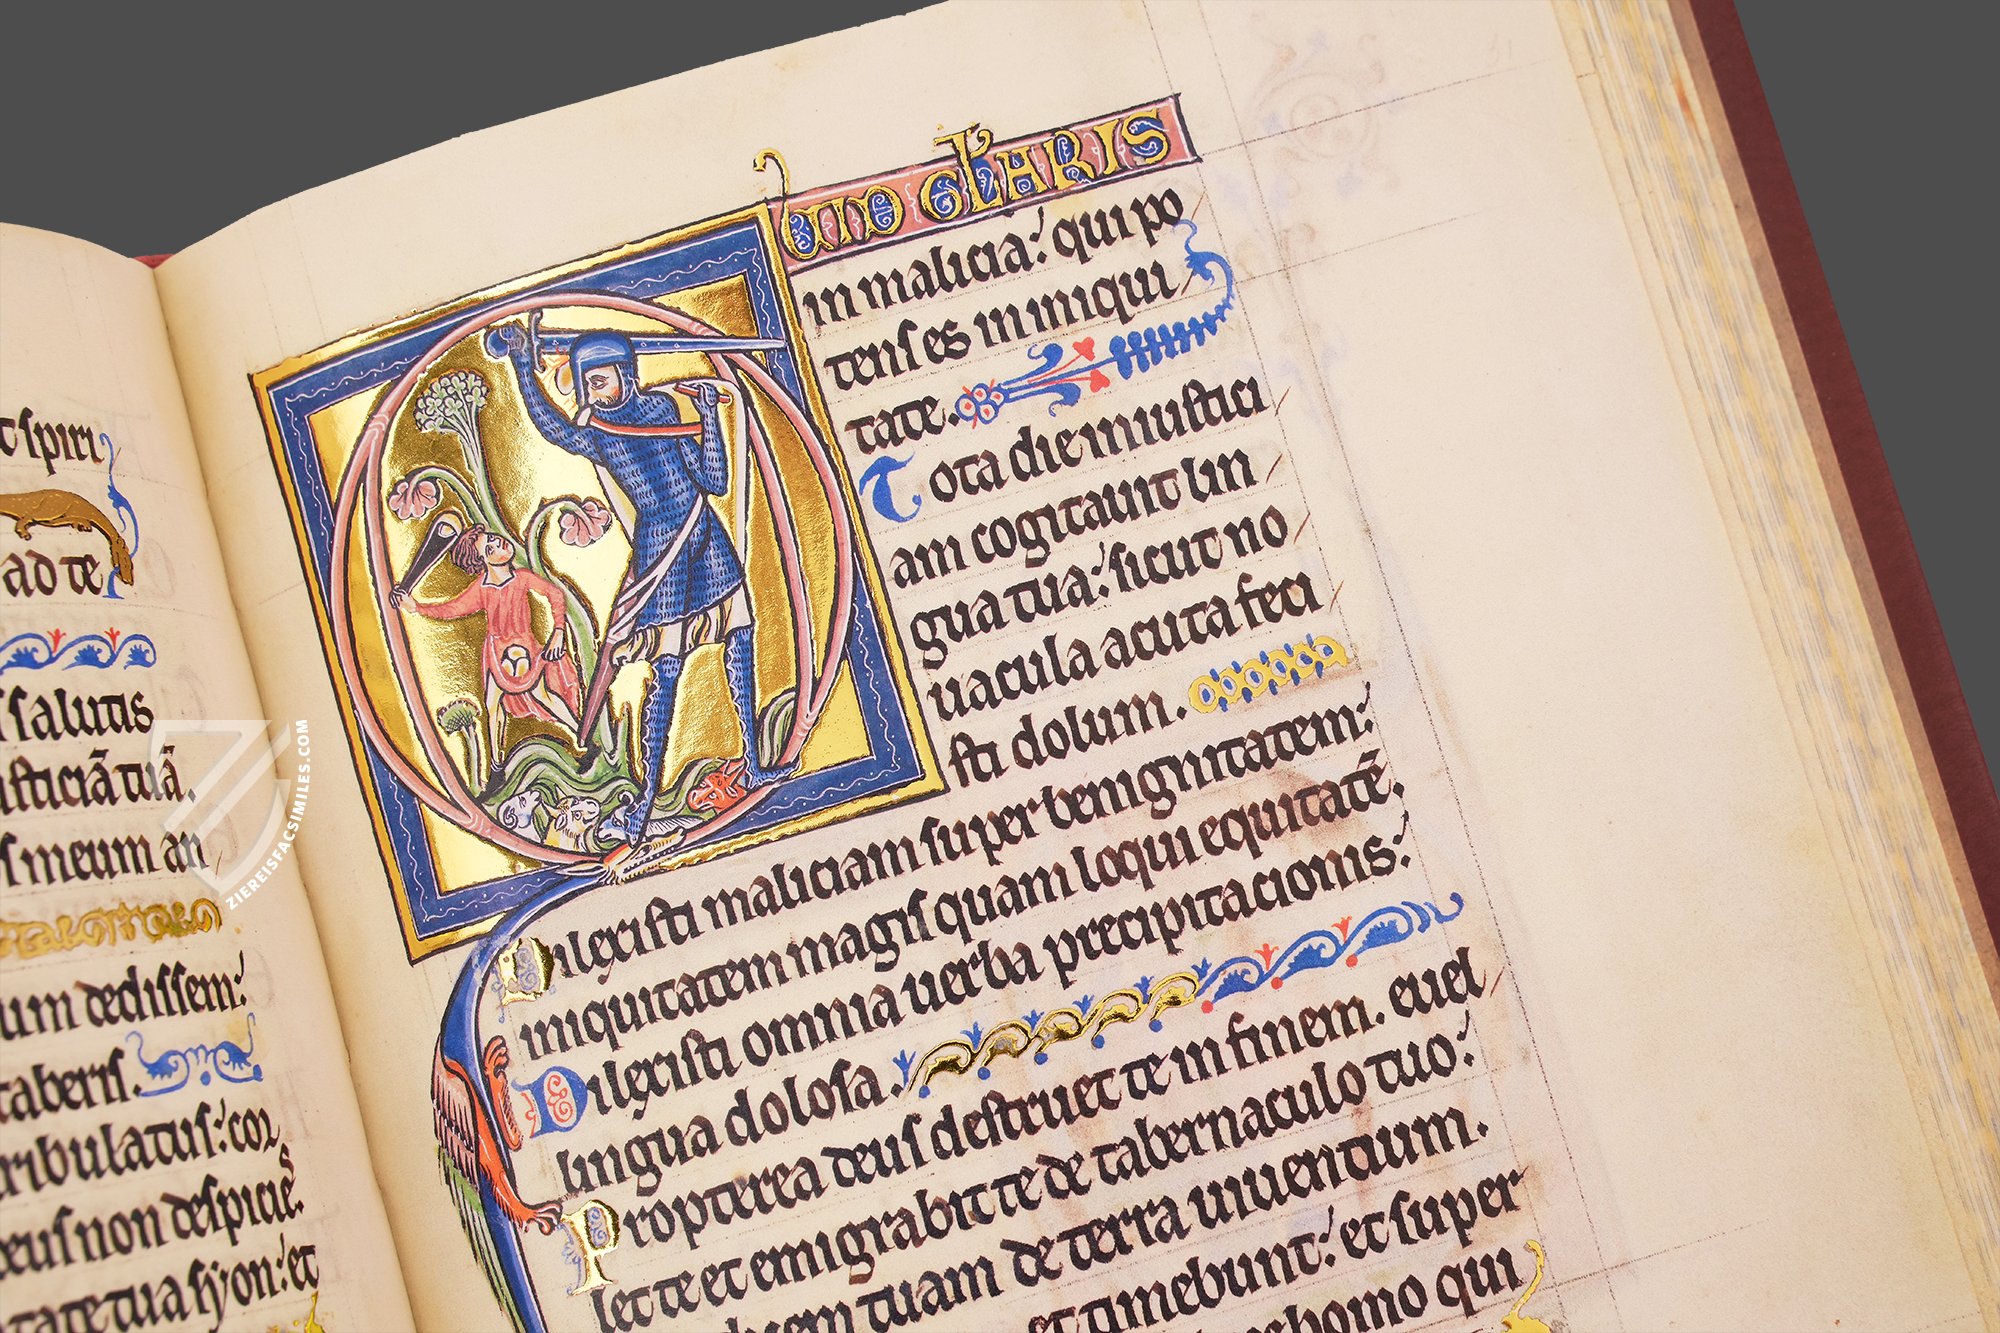 t spiri
ad te
salutis
isticiā tuā.
s meum an
um dedissem:
taberis.
ribulatus: cor
eus non despicies.
tate tua syon: et
Quid gloriaris
in malicia: qui po
tens es in iniqui
tate.
Tota die iniustici
am cogitauit lin
gua tua: sicut no
uacula acuta feci
sti dolum.
Dilexisti maliciam super benignitatem:
iniquitatem magis quam loqui equitatē.
Dilexisti omnia uerba precipitacionis:
lingua dolosa.
Propterea deus destruet te in finem. euel
let te et emigrabit te de tabernaculo tuo:
tuam de terra uiuentium.
et timebunt: et super
homo qui
ZIEREISFACSIMILES.COM